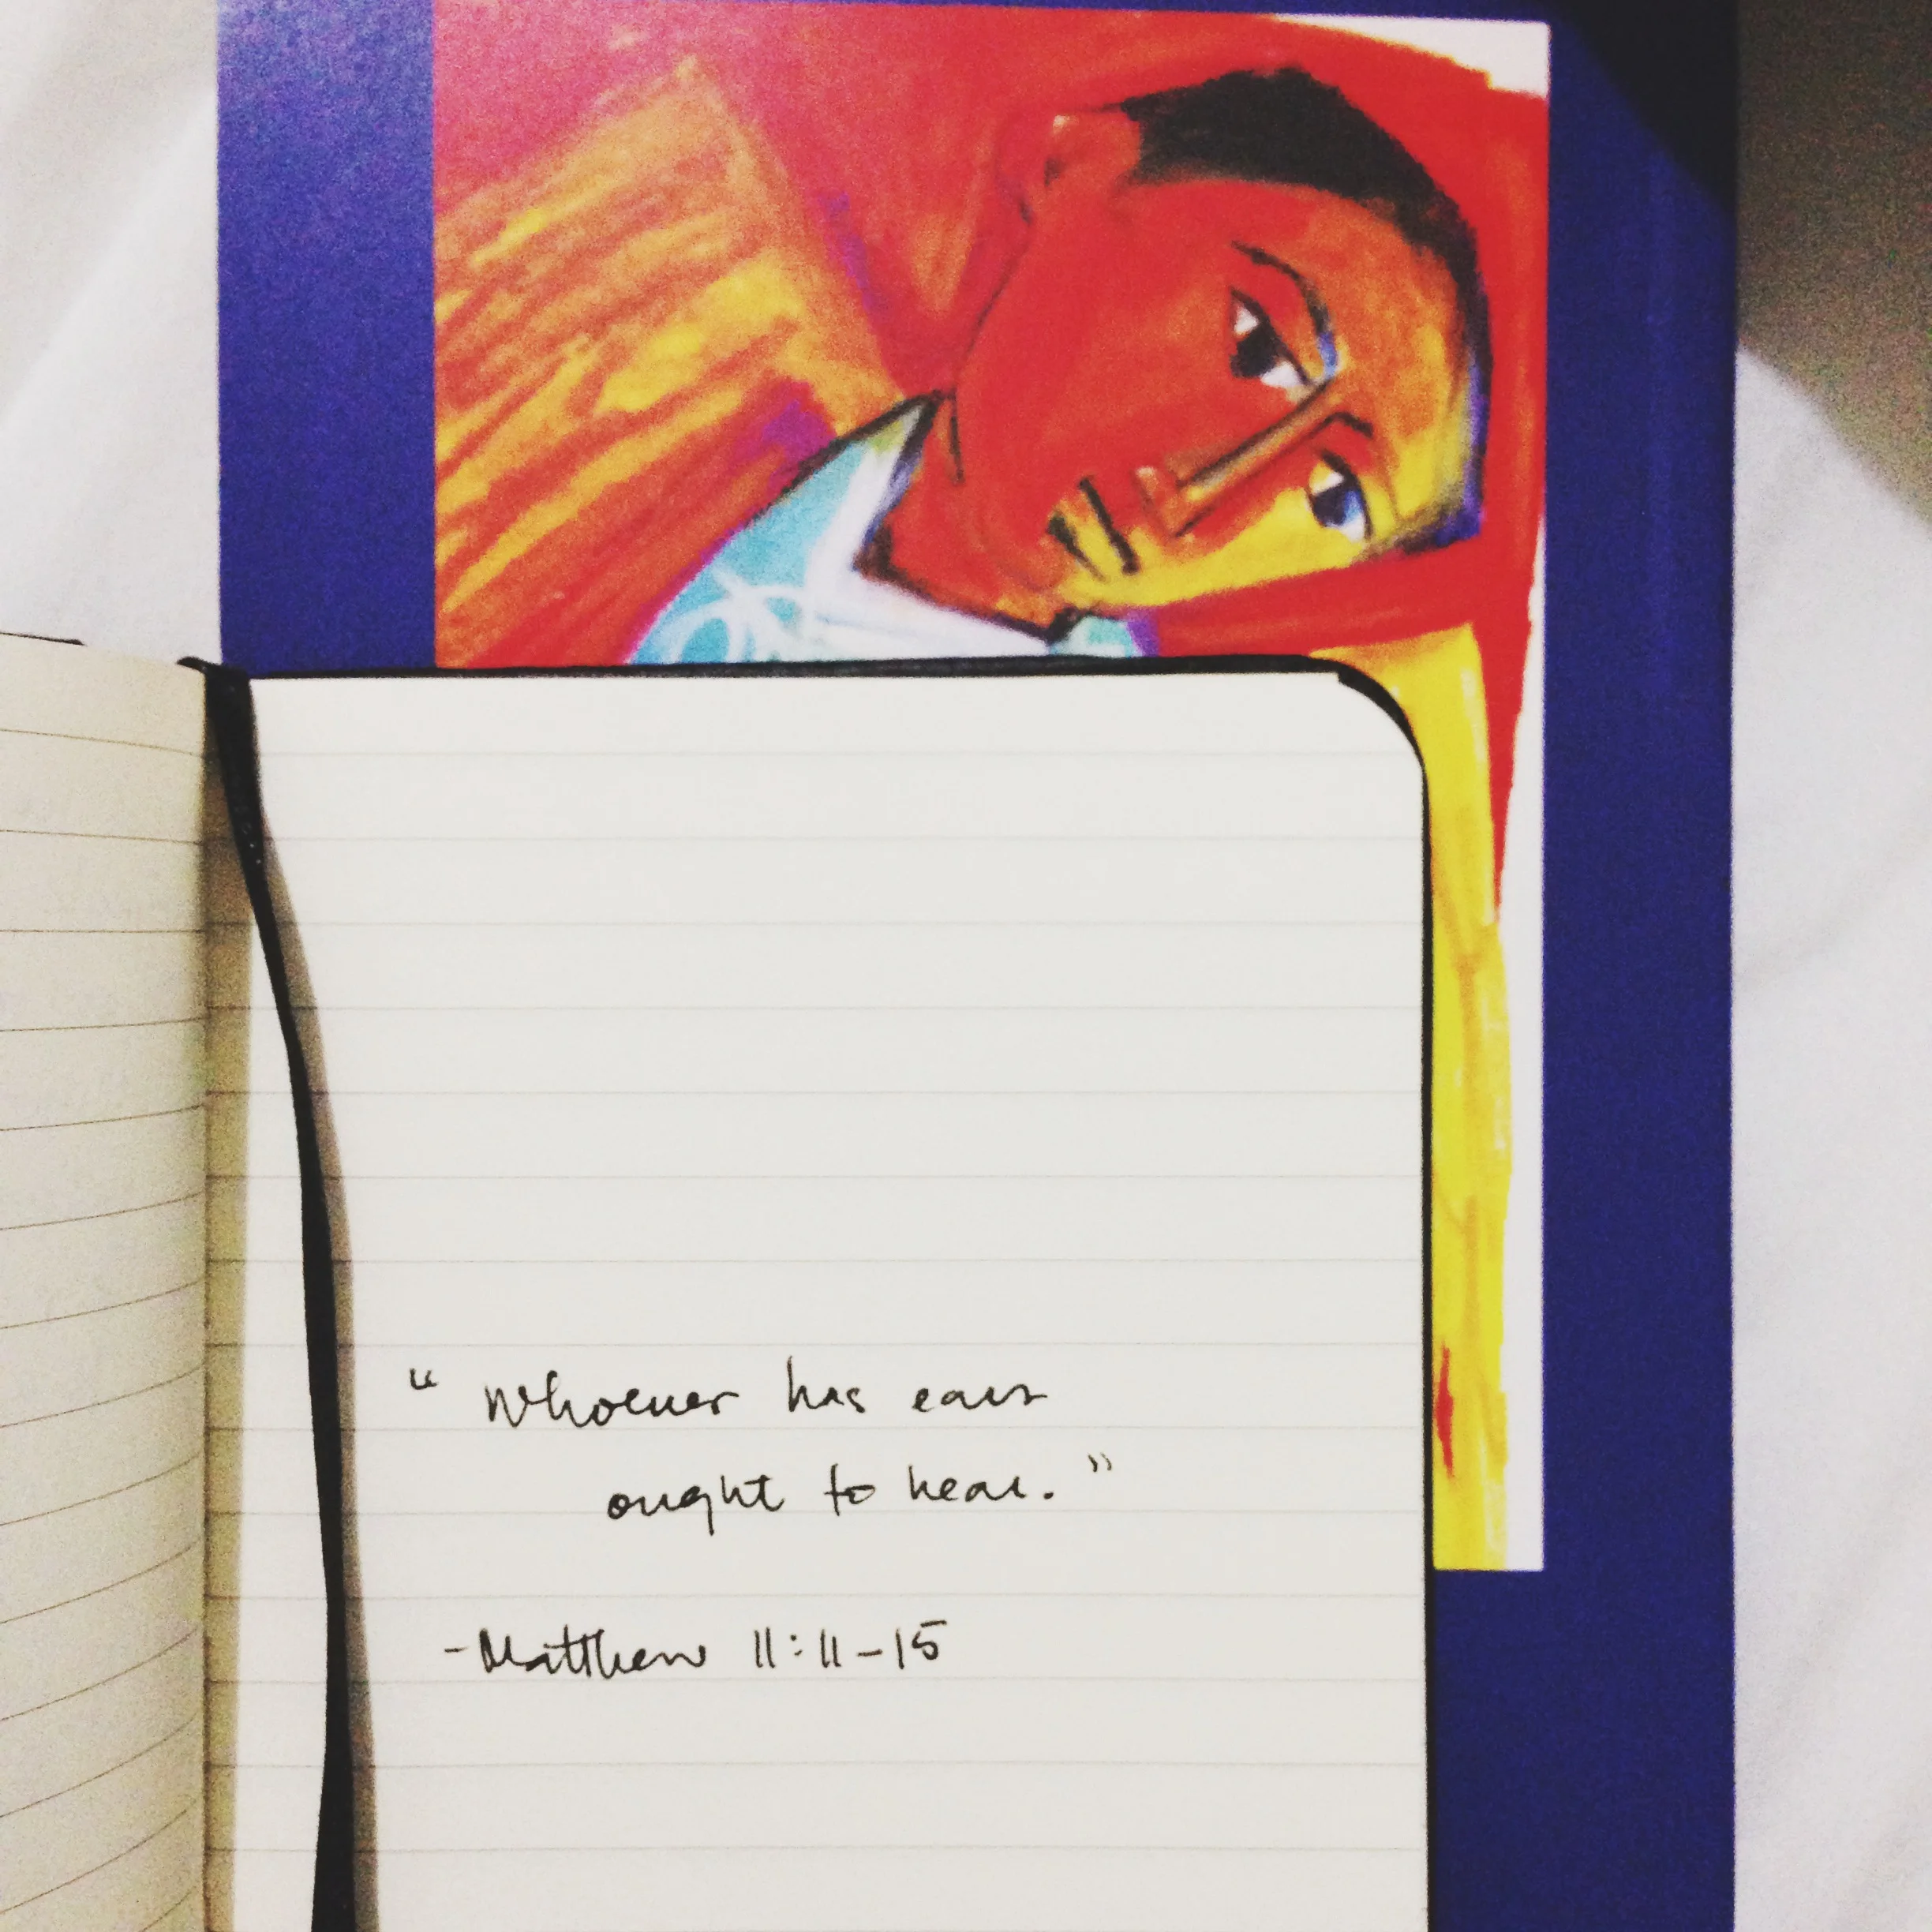 “ Whoever has ears
ought to hear. ”
- Matthew 11:11-15